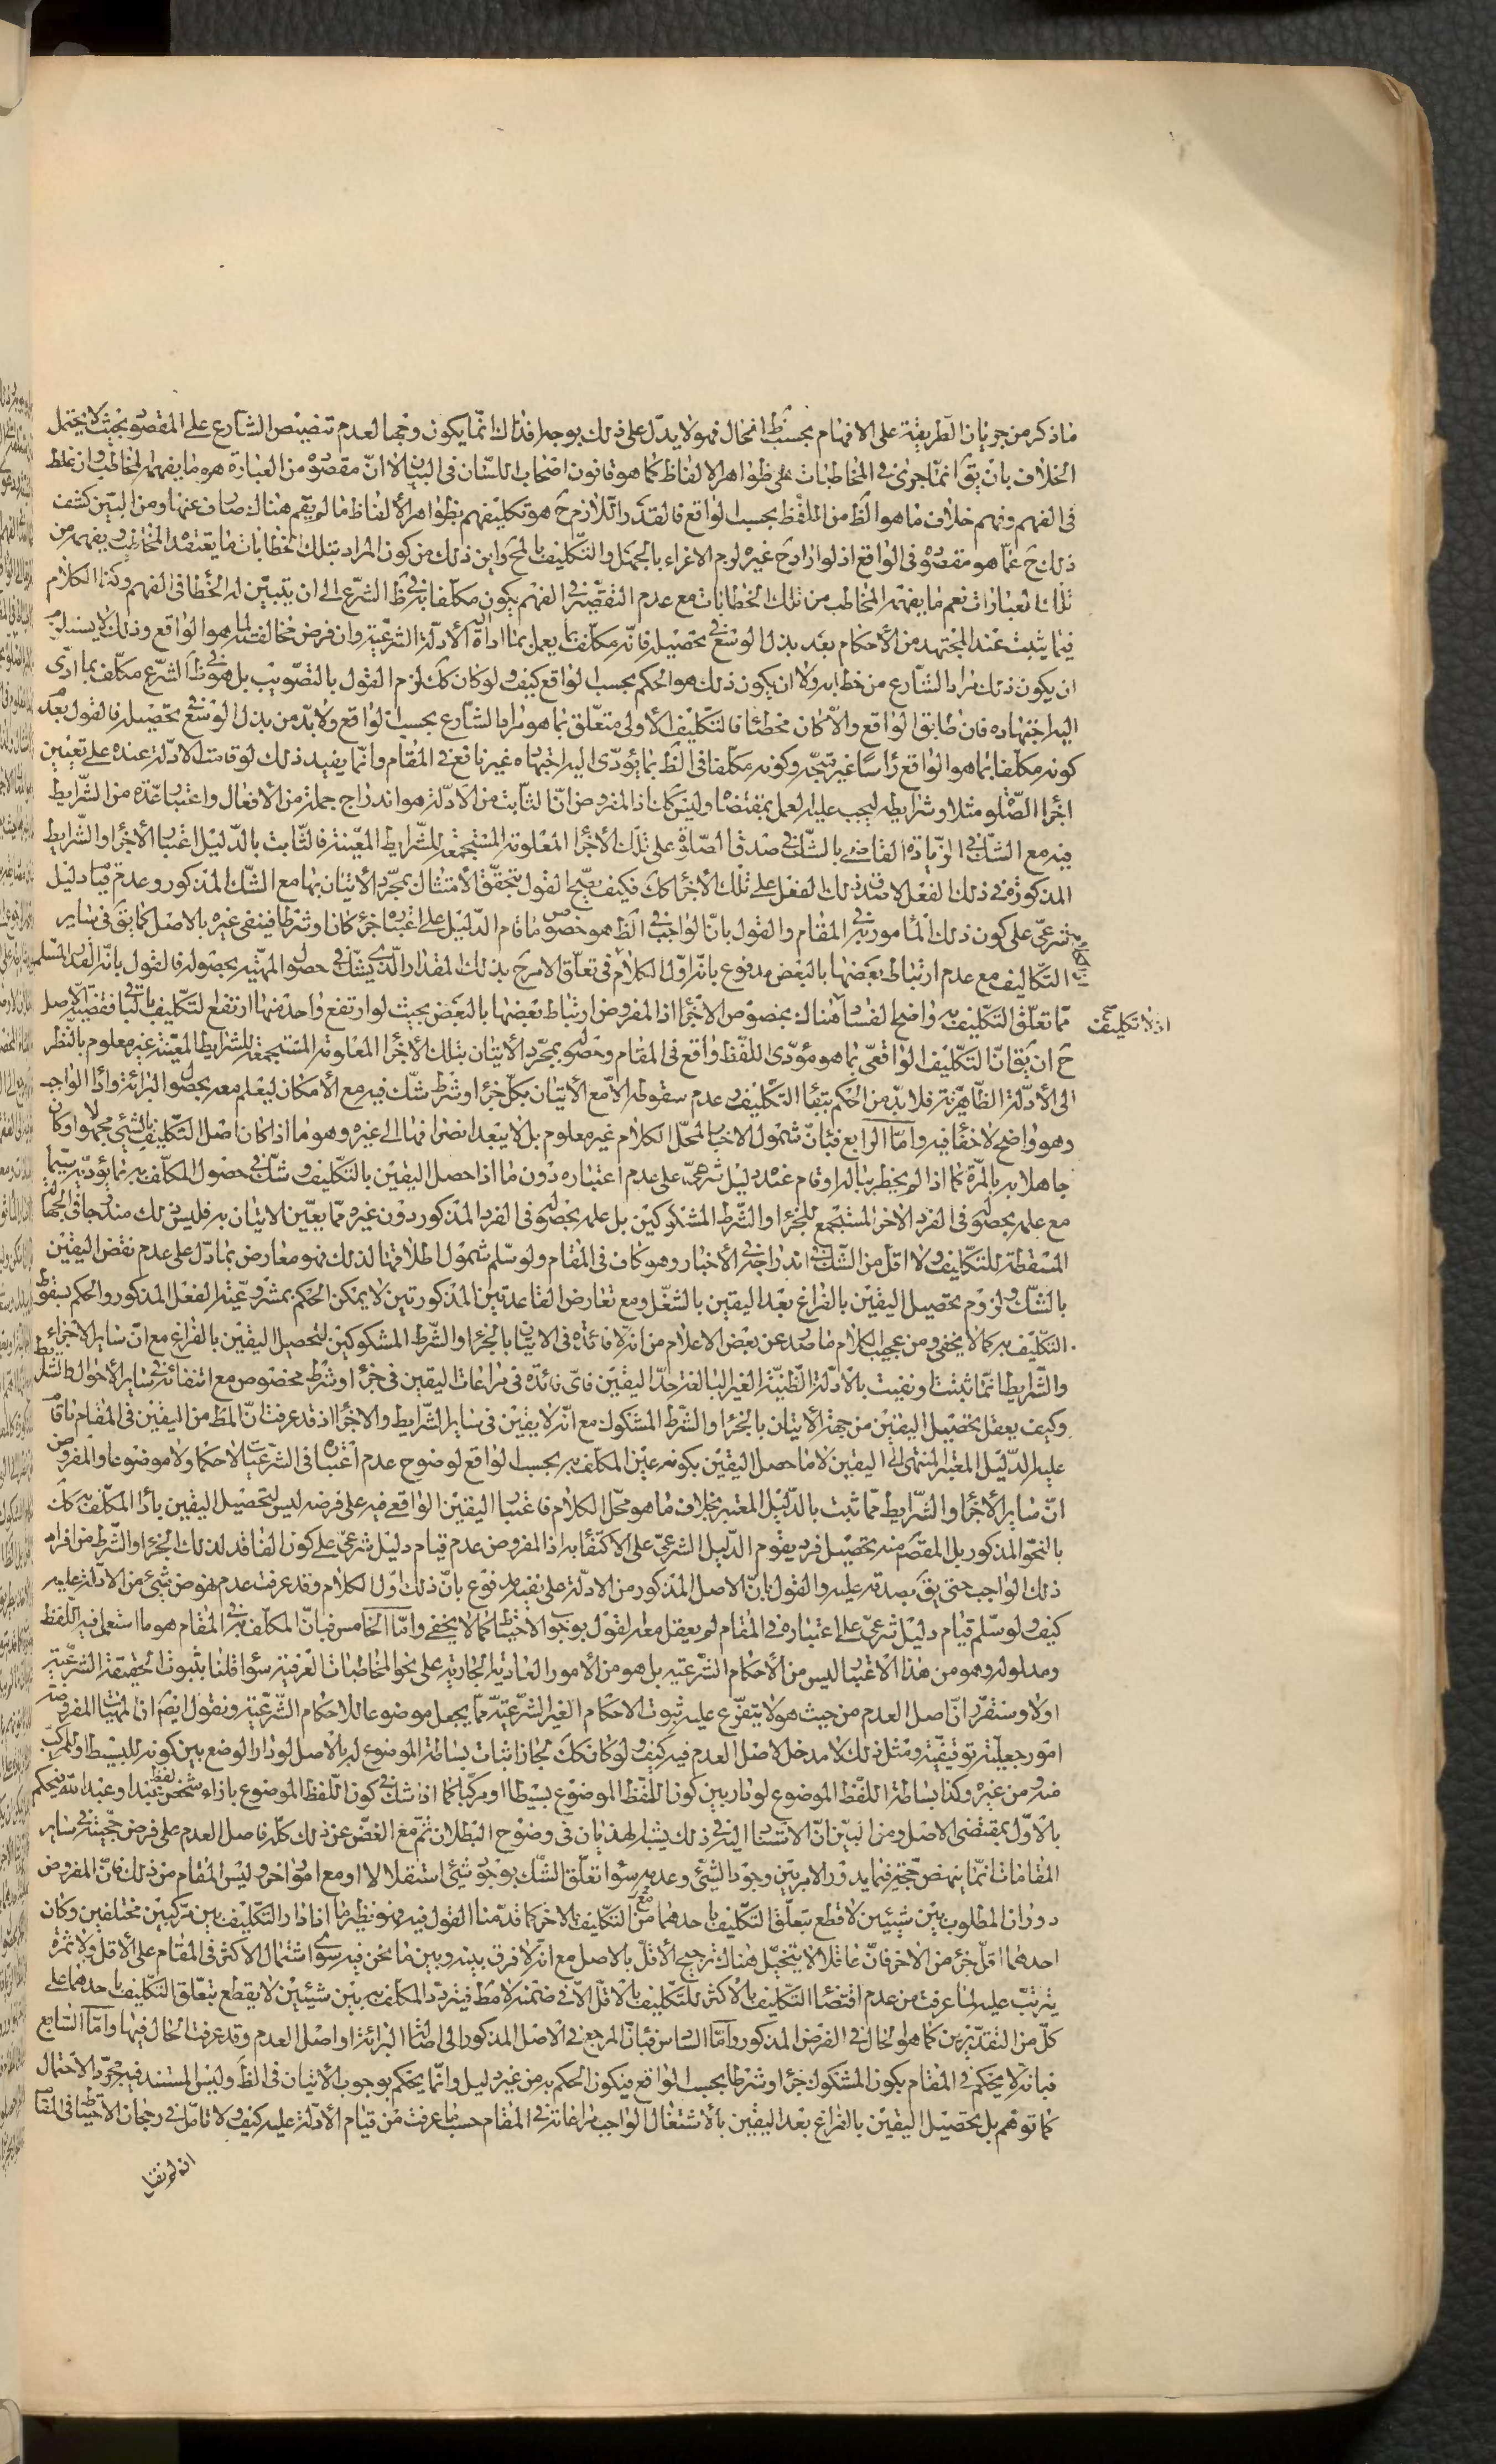 ما ذكر من جريان الطريقة على الافهام بحسب ظ الحال فهو لا يدل على ذلك بوجه اذ ذاك انما يكون وجها لعدم تنصيص الشارع على المقصود بحيث لا يحتمل
الخلاف بان يق انما جرى في المخاطبات على ظواهر الالفاظ كما هو قانون اصحاب اللسان في البيان الا ان مقصوده من العبارة هو ما يفهمه المخاطب وان غلط
في الفهم وفهم خلاف ما هو الظ من اللفظ بحسب الواقع فالقدر اللازم ح هو تكليفهم بظواهر الالفاظ ما لم يقم هناك صارف عنها ومن البين كشف
ذلك ح عما هو مقصوده في الواقع اذ لو اراد ح غيره لزم الاغراء بالجهل والتكليف بالمح واين ذلك من كون المراد بتلك الخطابات ما يعتقده المخاطب ويفهمه من
تلك العبارات نعم ما يفهمه المخاطب من تلك الخطابات مع عدم التقصير في الفهم يكون مكلفا به في ظ الشرع الى ان يتبين له الخطا في الفهم وكذا الكلام
فيما يثبت عند المجتهد من الاحكام بعد بذل الوسع في تحصيله فانه مكلف بما يعمل بما اداه اليه الادلة الشرعية وان فرض مخالفته لما هو الواقع وذلك لا يستلزم
ان يكون ذلك مراد الشارع من خطابه ولا ان يكون ذلك هو الحكم بحسب الواقع كيف ولو كان كك لزم القول بالتصويب بل هو في ظ الشرع مكلف بما ادى
اليه اجتهاده فان طابق الواقع والا كان مخطئا فالتكليف الاولى متعلق بما هو مراد الشارع بحسب الواقع ولابد من بذل الوسع في تحصيله فالقول بعدم
كونه مكلفا بما هو الواقع راسا غير متجه وكونه مكلفا في الظ بما يؤدى اليه اجتهاده غير نافع في المقام وانما يفيد ذلك لو قامت الادلة عنده على تعيين
اجزاء الصلوة مثلا وشرايطه ليجب عليه العمل بمقتضاه وليس كك اذ المفروض ان الثابت من الادلة هو اندراج جملة من الافعال واعتبار عدة من الشرايط
فيه مع الشك في الزيادة القاضي بالشك في صدق الصلوة على تلك الاجزاء المعلومة المستجمعة للشرايط المعينة فالثابت بالدليل اعتبار الاجزاء والشرايط
المذكورة في ذلك الفعل لا ان ذلك الفعل على تلك الاجزاء كك فكيف يصح القول بتحقق الامتثال بمجرد الاتيان بها مع الشك المذكور وعدم قيام دليل
شرعي على كون ذلك المأمور به في المقام والقول بان الواجب في الظ هو خصوص ما قام الدليل على اعتباره جزء كان او شرطا فينفى غيره بالاصل كما يق في ساير
التكاليف مع عدم ارتباط بعضها بالبعض مدفوع بانه اول الكلام في تعلق الامر ح بذلك المقدار الذي يشك في حصول المهية بحصوله فالقول بانه القدر المسلم
مما تعلق التكليف به واضح الفساد اذ لا تكليف صح هناك بخصوص الاجزاء اذ المفروض ارتباط بعضها بالبعض بحيث لو ارتفع واحد منها ارتفع التكليف بالباقي فقضية الاصل
ح ان يق ان التكليف الواقعي بما هو مؤدى اللفظ واقع في المقام وحصوله بمجرد الاتيان بتلك الاجزاء المعلومة المستجمعة للشرايط المعينة غير معلوم بالنظر
الى الادلة الظاهرية فلابد من الحكم ببقاء التكليف وعدم سقوطه الا مع الاتيان بكل جزء او شرط شك فيه مع الامكان ليعلم معه بحصول البرائة واداء الواجب
وهو واضح لا خفاء فيه واما الرابع فبان شمول الاخبار لمحل الكلام غير معلوم بل لا يبعد انصرافها الى غيره وهو ما اذا كان اصل التكليف بالشيء مجهولا وكان
جاهلا به بالمرة كما اذا لم يخطر بباله او قام عنده دليل شرعي على عدم اعتباره دون ما اذا حصل اليقين بالتكليف وشك في حصول المكلف به بما يؤديه سيما
مع علمه بحصوله في الفرد الاخر المستجمع للجزء او الشرط المشكوكين بل علمه بحصوله في الفرد المذكور دون غيره مما يعين الاتيان به فليس ذلك مندرجا في الجهالة
المسقطة للتكليف ولا اقل من الشك في اندراجه في الاخبار وهو كاف في المقام ولو سلم شمول اطلاقها لذلك فهو معارض بما دل على عدم نقض اليقين
بالشك ولزوم تحصيل اليقين بالفراغ بعد اليقين بالشغل ومع تعارض القاعدتين المذكورتين لا يمكن الحكم بمشروعية الفعل المذكور والحكم بسقوط
التكليف به كما لا يخفى ومن عجيب الكلام ما صدر عن بعض الاعلام من انه لا فائدة في الاتيان بالجزء او الشرط المشكوكين لتحصيل اليقين بالفراغ مع ان ساير الاجزاء
والشرايط انما ثبتت او نفيت بالادلة الظنية الغير البالغة حد اليقين فاى فائدة في مراعات اليقين في جزء او شرط مخصوص مع انتفائه في ساير الاحوال
وكيف يعقل تحصيل اليقين من جهة الاتيان بالجزء او الشرط المشكوك مع انه لا يقين في ساير الشرايط والاجزاء اذ قد عرفت ان المط من اليقين في المقام ما قام
عليه الدليل المعتبر المنتهى الى اليقين لا ما حصل اليقين بكونه عين المكلف به بحسب الواقع لوضوح عدم اعتباره في الشرعيات لا حكما ولا موضوعا والمفروض
ان ساير الاجزاء والشرايط مما ثبت بالدليل المعتبر بخلاف ما هو محل الكلام فاعتبار اليقين الواقعي فيه على فرضه ليس لتحصيل اليقين باداء المكلف به كك
بالنحو المذكور بل المقصود منه تحصيل فرد يقوم الدليل الشرعي على الاكتفاء به اذ المفروض عدم قيام دليل شرعي على كون الفاقد لذلك الجزء او الشرط من افراد
ذلك الواجب حتى يق بصدقه عليه والقول بان الاصل المذكور من الادلة على نفيه مدفوع بان ذلك اول الكلام وقد عرفت عدم نهوض شيء من الادلة عليه
كيف ولو سلم قيام دليل شرعي على اعتباره في المقام لم يعقل معه القول بوجوب الاحتياط كما لا يخفى واما الخامس فبان المكلف به في المقام هو ما استعمل فيه اللفظ
ومدلوله وهو من هذا الاعتبار ليس من الاحكام الشرعية بل هو من الامور العادية الجارية على نحو المخاطبات العرفية سواء قلنا بثبوت الحقيقة الشرعية
اولا وستقرر ان اصل العدم من حيث هو لا يتفرع عليه ثبوت الاحكام الغير الشرعية مما يجعل موضوعا للاحكام الشرعية ونقول ايض ان المهيات المفروضة
امور جعلية توقيفية ومثل ذلك لا مدخل لاصل العدم فيه كيف ولو كان كك لجاز اثبات بساطة الموضوع له بالاصل لو دار الوضع بين كونه للبسيط او المركب
منه ومن غيره وكذا بساطة اللفظ الموضوع لو دار بين كون اللفظ الموضوع بسيطا او مركبا كما اذا شك في كون اللفظ الموضوع بازاء شخص لفظ عبد او عبد الله فيحكم
بالاول بمقتضى الاصل ومن البين ان الاستناد اليه في ذلك يشبه الهذيان في وضوح البطلان ثم مع الغض عن ذلك كله فاصل العدم على فرض حجيته في ساير
المقامات انما ينهض حجة فيما يدور الامر بين وجود الشيء وعدمه سواء تعلق الشك بوجود شيء استقلالا او مع امور اخر وليس المقام من ذلك فان المفروض
دوران المطلوب بين شيئين لا قطع بتعلق التكليف باحدهما مع من التكليف بالاخر كما قدمنا القول فيه وهو نظير ما اذا دار التكليف بين مركبين مختلفين وكان
احدهما اقل جزء من الاخر فان عاقلا لا يتخيل هناك ترجيح الاقل بالاصل مع انه لا فرق بينه وبين ما نحن فيه سوى اشتمال الاكثر في المقام على الاقل ولا ثمرة
يترتب عليه لما عرفت من عدم اقتضاء التكليف بالاكثر للتكليف بالاقل الا في ضمنه لا مط فيتردد المكلف به بين شيئين لا يقطع بتعلق التكليف باحدهما على
كل من التقديرين كما هو الحال في الفرض المذكور واما السادس فبان المرجع في الاصل المذكور الى اصالة البرائة او اصل العدم وقد عرفت الحال فيها واما السابع
فبانه لا يحكم في المقام بكون المشكوك جزء او شرطا بحسب الواقع فيكون الحكم به من غير دليل وانما يحكم بوجوب الاتيان في الظ وليس المستند فيه مجرد الاحتمال
كما توهم بل تحصيل اليقين بالفراغ بعد اليقين بالاشتغال الواجب مراعاته في المقام حسبما عرفت من قيام الادلة عليه كيف ولا تامل في رجحان الاحتياط في المقام